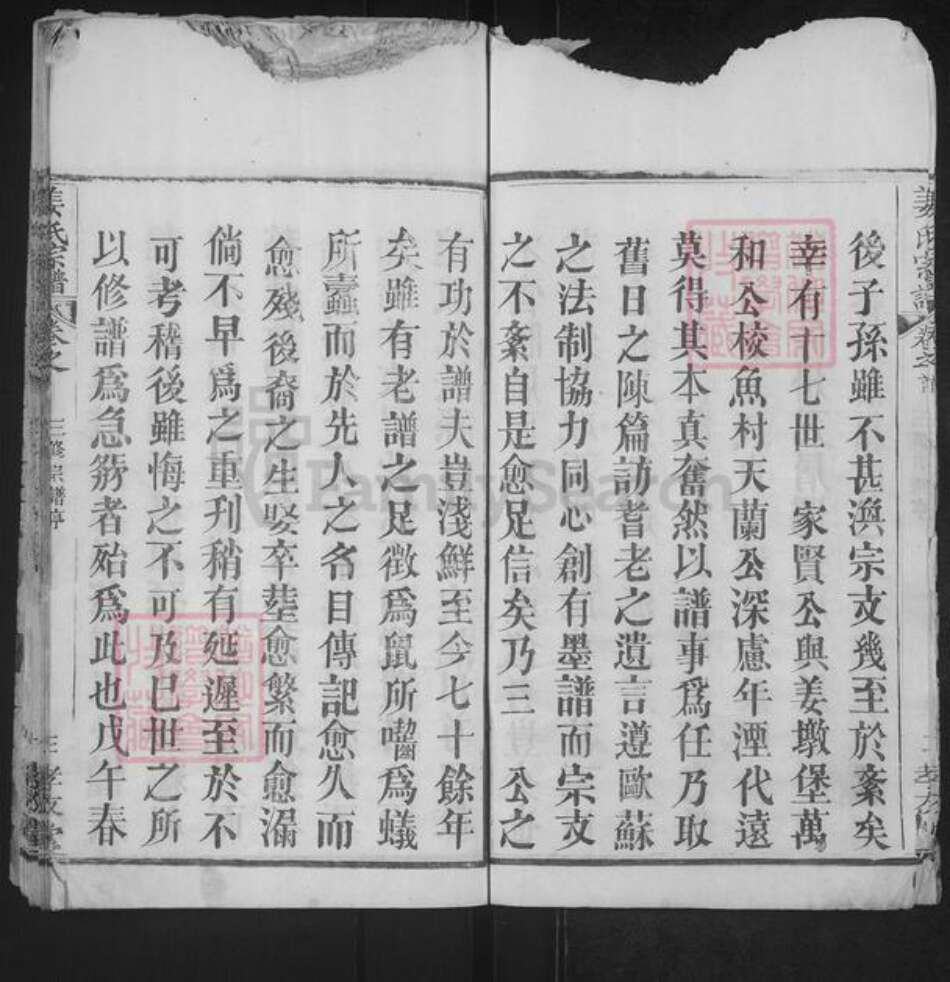 後子孫雖不甚渙宗支幾至於紊矣
幸有十七世 家賢公與姜墩堡萬
和公校魚村天蘭公深慮年湮代遠
莫得其本真奮然以譜事爲任乃取
舊日之陳篇訪耆老之遺言遵歐蘇
之法制協力同心創有墨譜而宗支
之不紊自是愈足信矣乃三 公之
有功於譜夫豈淺鮮至今七十餘年
矣雖有老譜之足徵爲鼠所嚙爲蟻
所蠧而於先人之名目傳記愈久而
愈殘後裔之生娶卒塟愈繁而愈漏
倘不早爲之重刋稍有延遲至於不
可考稽後雖悔之不可及已世之所
以修譜爲急務者殆爲此也戊午春
姜氏宗譜
卷之
三修宗譜序
三
FamilySearch